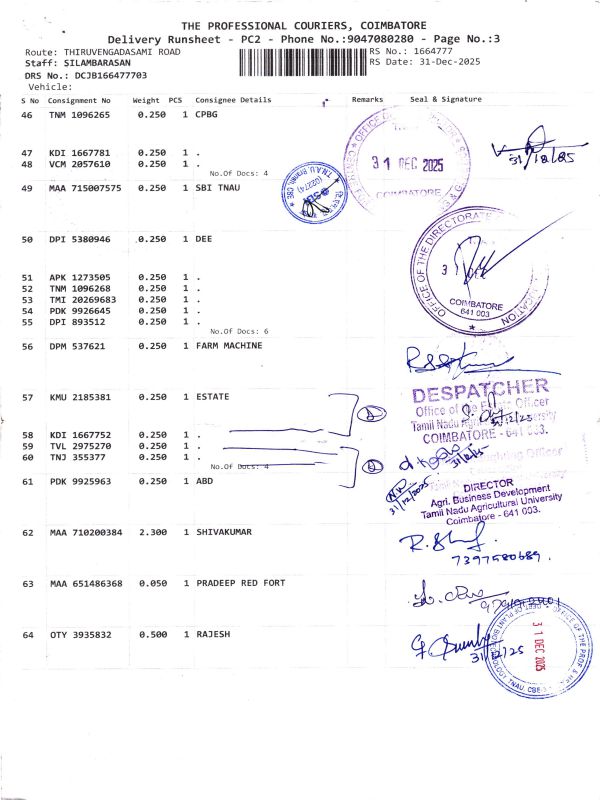 THE PROFESSIONAL COURIERS, COIMBATORE
Delivery Runsheet - PC2 - Phone No.:9047080280 - Page No.:3
Route: THIRUVENGADASAMI ROAD
RS No.: 1664777
Staff: SILAMBARASAN
RS Date: 31-Dec-2025
DRS No.: DCJB166477703
Vehicle:
S No Consignment No Weight PCS Consignee Details Remarks Seal & Signature
46 TNM 1096265 0.250 1 CPBG
31 DEC 2025
COIMBATORE
31/12/25
47 KDI 1667781 0.250 1 .
48 VCM 2057610 0.250 1 .
No.Of Docs: 4
49 MAA 715007575 0.250 1 SBI TNAU
50 DPI 5380946 0.250 1 DEE
OFFICE OF THE DIRECTORATE
COIMBATORE
641 003
51 APK 1273505 0.250 1 .
52 TNM 1096268 0.250 1 .
53 TMI 20269683 0.250 1 .
54 PDK 9926645 0.250 1 .
55 DPI 893512 0.250 1 .
No.Of Docs: 6
56 DPM 537621 0.250 1 FARM MACHINE
57 KMU 2185381 0.250 1 ESTATE
DESPATCHER
Office of the Officer
Tamil Nadu Agri University
COIMBATORE - 641 003.
58 KDI 1667752 0.250 1 .
59 TVL 2975270 0.250 1 .
60 TNJ 355377 0.250 1 .
No.Of Docs: 4
61 PDK 9925963 0.250 1 ABD
31/12/2025
DIRECTOR
Agri. Business Development
Tamil Nadu Agricultural University
Coimbatore - 641 003.
62 MAA 710200384 2.300 1 SHIVAKUMAR
7397580689.
63 MAA 651486368 0.050 1 PRADEEP RED FORT
64 OTY 3935832 0.500 1 RAJESH
31/12/25
31 DEC 2025